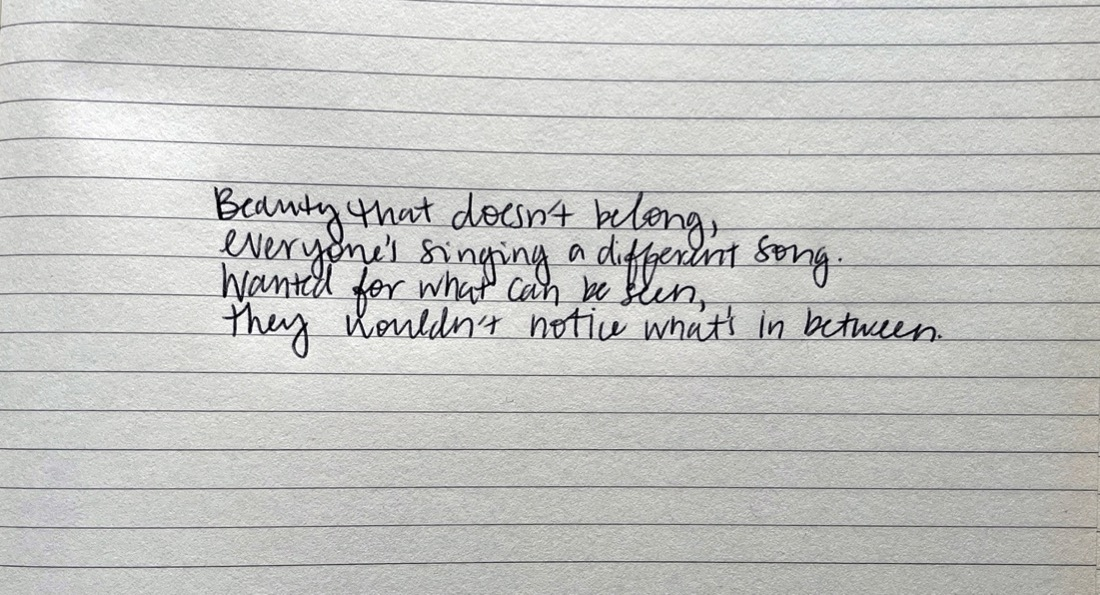 Beauty that doesn't belong,
everyone's singing a different song.
Wanted for what can be seen,
they wouldn't notice what's in between.